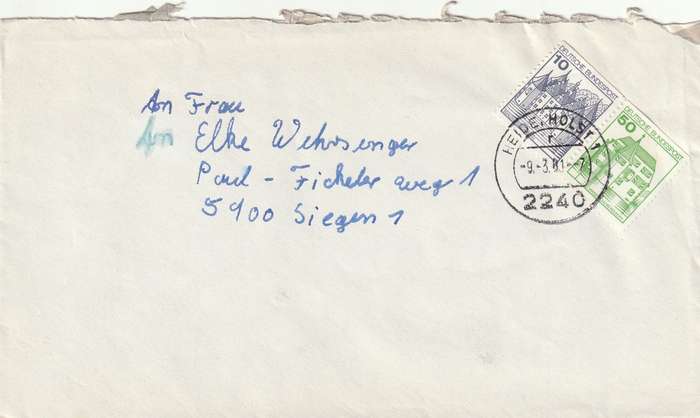 An Frau
An Elke Wehrsenger
Paul-Fickeler weg 1
5900 Siegen 1
10
DEUTSCHE BUNDESPOST
50
DEUTSCHE BUNDESPOST
HEIDE, HOLST 1
r
2240